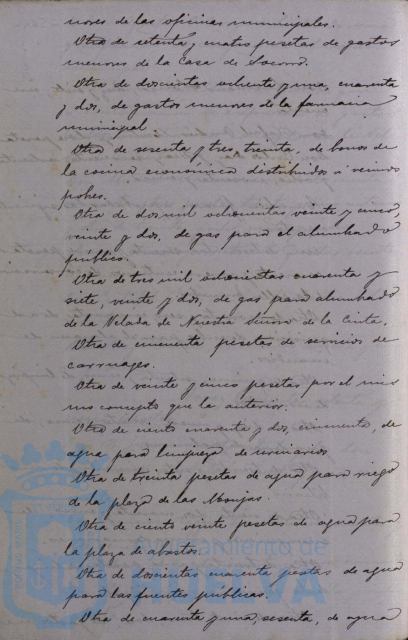 nores de las oficinas municipales.
Otra de setenta y cuatro pesetas de gastos
menores de la Casa de Socorro.
Otra de doscientas ochenta y una, cuarenta
y dos, de gastos menores de la farmacia
municipal
Otra de sesenta y tres, treinta, de bonos de
la cocina económica distribuidos a vecinos
pobres.
Otra de dos mil ochocientas veinte y cinco,
veinte y dos, de gas para el alumbrado
público.
Otra de tres mil ochocientas cuarenta y
siete, veinte y dos, de gas para alumbrado
de la Velada de Nuestra Señora de la Cinta.
Otra de cincuenta pesetas de servicios de
carruages.
Otra de veinte y cinco pesetas por el mis
mo concepto que la anterior.
Otra de ciento cuarenta y dos, cincuenta, de
agua para limpieza de urinarios
Otra de treinta pesetas de agua para riego
de la plaza de las Monjas.
Otra de ciento veinte pesetas de agua para
la plaza de abastos.
Otra de doscientas cuarenta pestas de agua
para las fuentes públicas.
Otra de cuarenta y una, sesenta, de agua
Ayuntamiento de
HUELVA